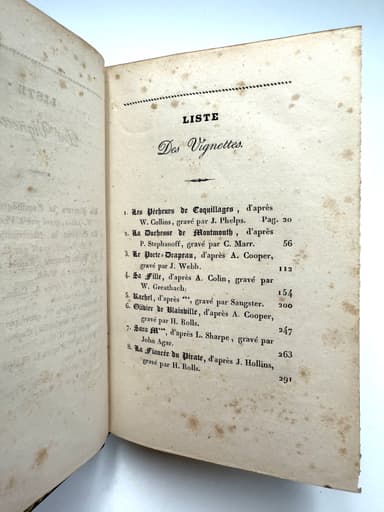 LISTE
Des Vignettes.
1. Les Pêcheurs de Coquillages, d'après
W. Collins, gravé par J. Phelps. Pag. 20
2. La Duchesse de Montmouth, d'après
P. Stephanoff, gravé par C. Marr. 56
3. Le Porte-Drapeau, d'après A. Cooper,
gravé par J. Webb. 112
4. Sa Fille, d'après A. Colin, gravé par
W. Greatbach. 154
5. Rachel, d'après ***, gravé par Sangster. 200
6. Olivier de Blainville, d'après A. Cooper,
gravé par H. Rolls. 247
7. Sara M***, d'après L. Sharpe, gravé par
John Agar. 263
8. La Fiancée du Pirate, d'après J. Hollins,
gravé par H. Rolls. 291